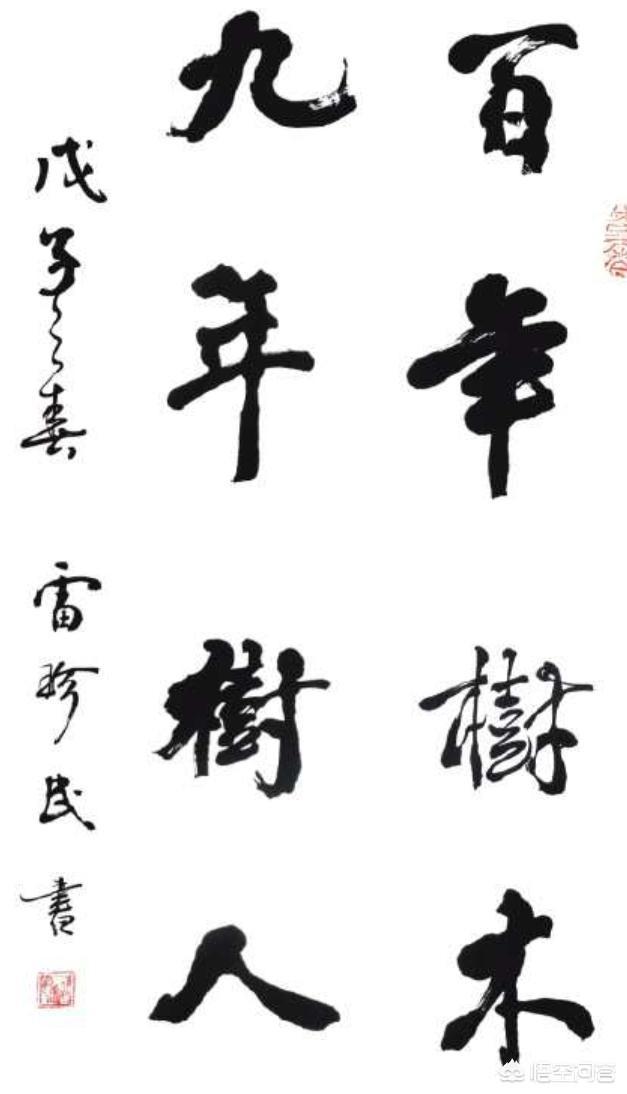 百年樹木
九年樹人
戊子之春 雷珍民書
悟空问答